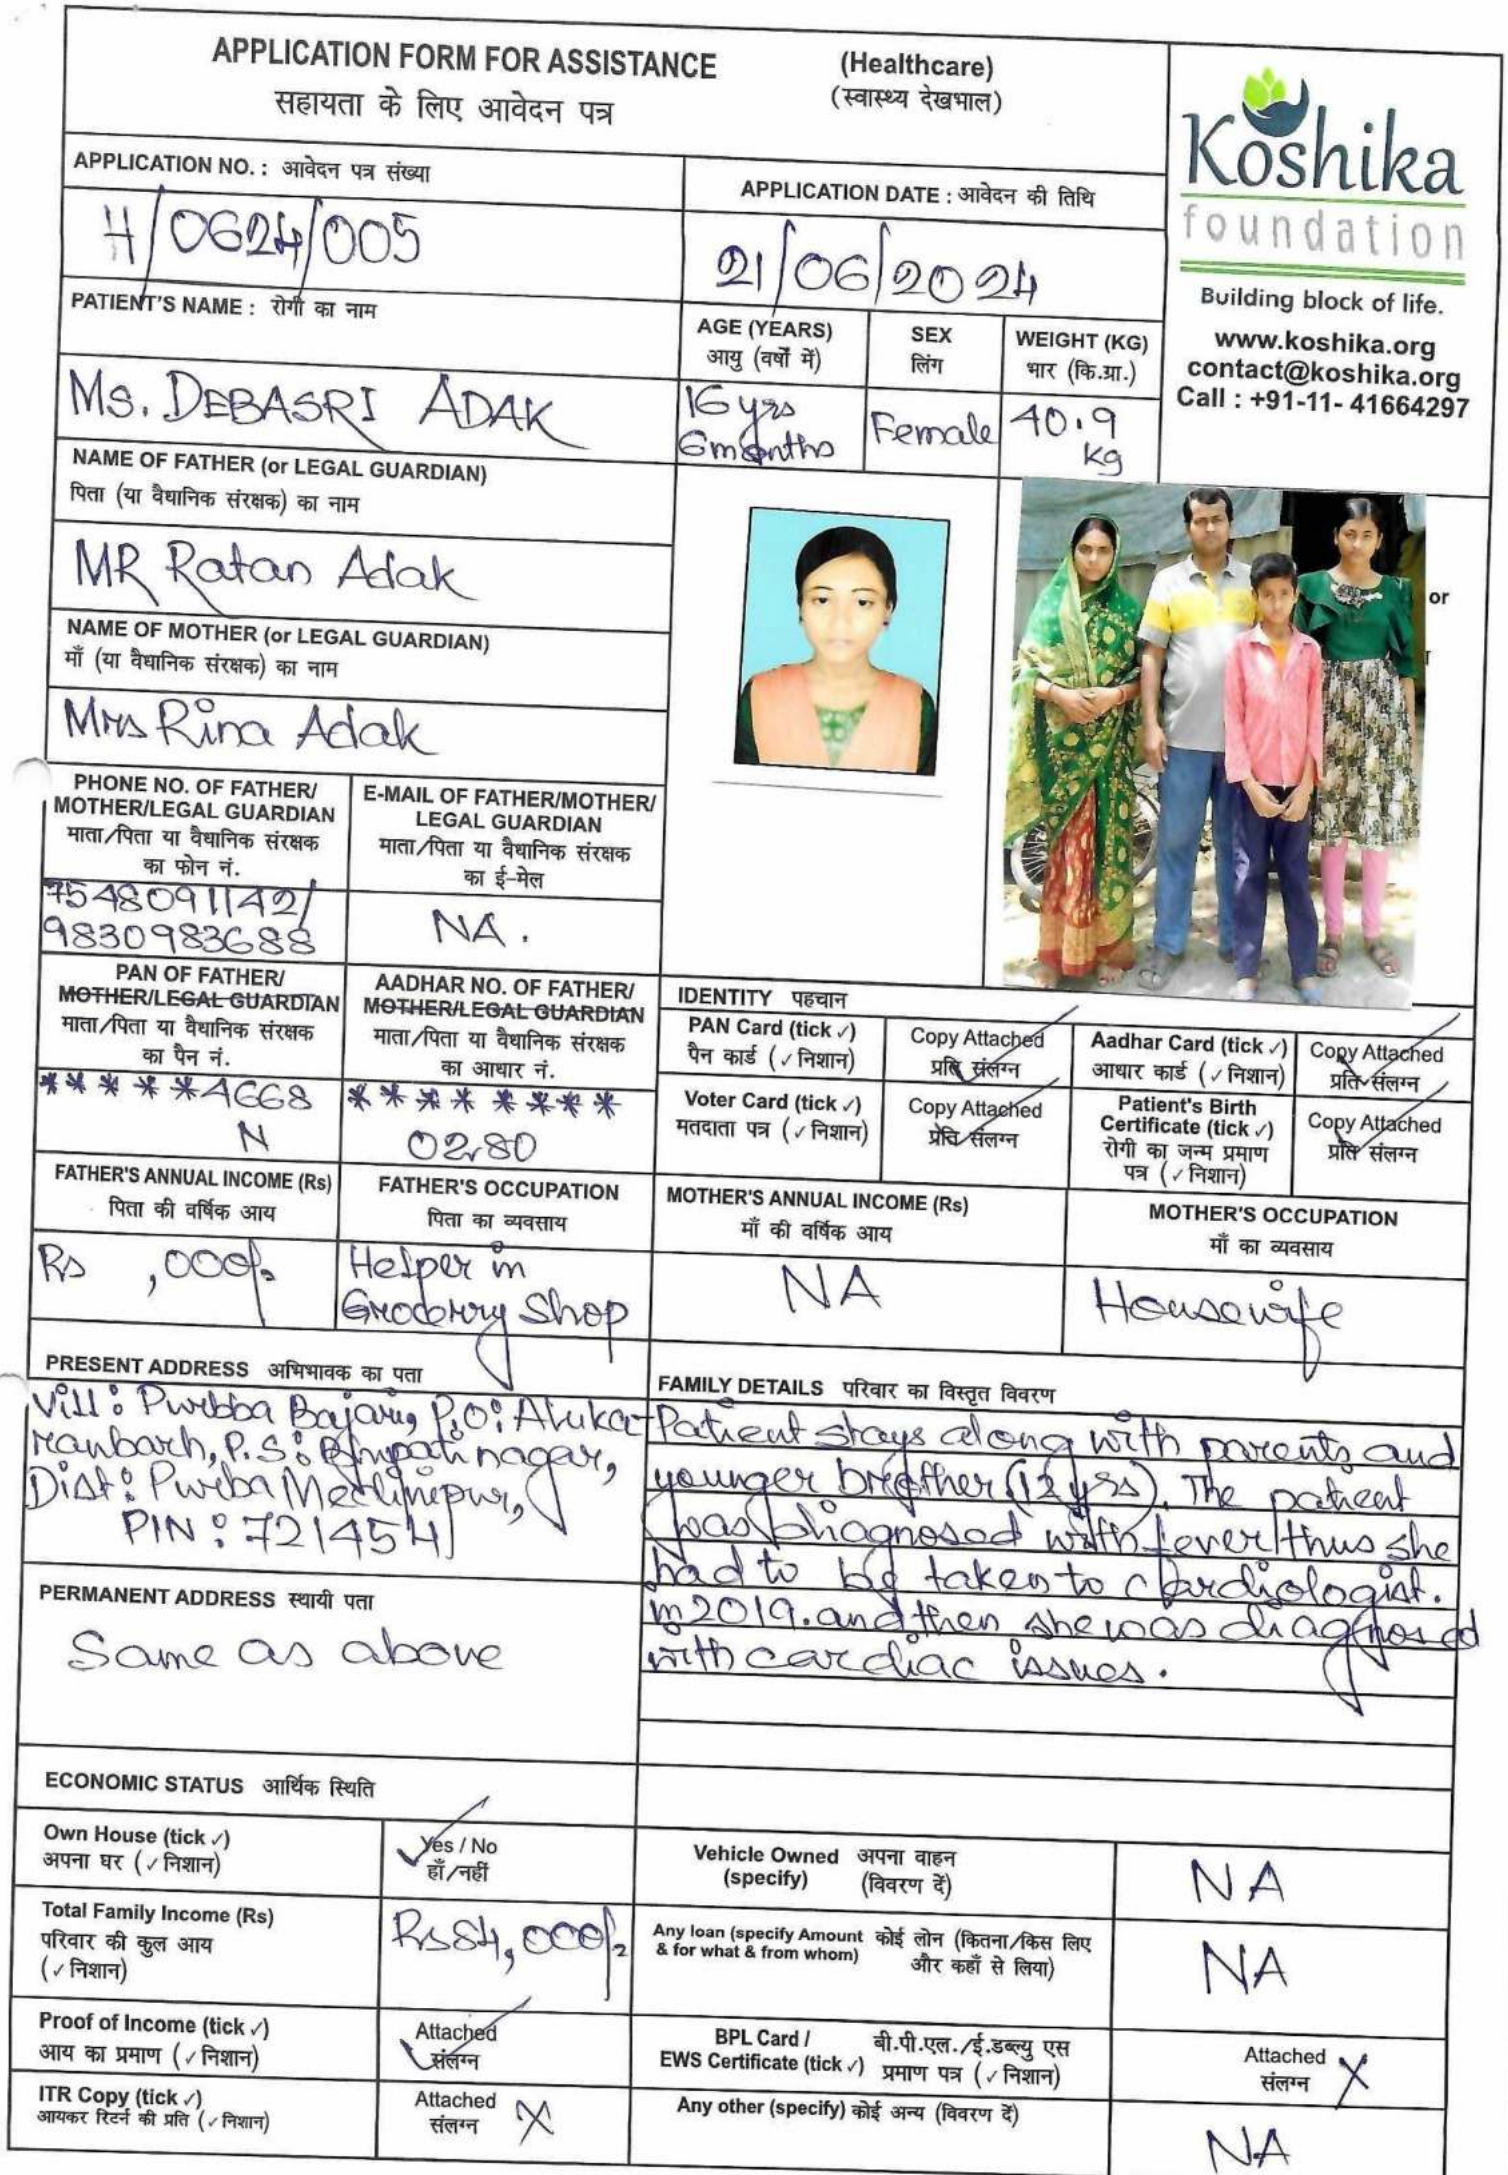 APPLICATION FORM FOR ASSISTANCE (Healthcare)
सहायता के लिए आवेदन पत्र (स्वास्थ्य देखभाल)
Koshika
foundation
Building block of life.
www.koshika.org
contact@koshika.org
Call : +91-11- 41664297
APPLICATION NO. : आवेदन पत्र संख्या
H/0624/005
APPLICATION DATE : आवेदन की तिथि
21/06/2024
PATIENT'S NAME : रोगी का नाम
Ms. DEBASRI ADAK
AGE (YEARS)
आयु (वर्षों में)
16 yrs
6 months
SEX
लिंग
Female
WEIGHT (KG)
भार (कि.ग्रा.)
40.9
kg
NAME OF FATHER (or LEGAL GUARDIAN)
पिता (या वैधानिक संरक्षक) का नाम
MR Ratan Adak
or
NAME OF MOTHER (or LEGAL GUARDIAN)
माँ (या वैधानिक संरक्षक) का नाम
Mrs Rina Adak
PHONE NO. OF FATHER/
MOTHER/LEGAL GUARDIAN
माता/पिता या वैधानिक संरक्षक
का फोन नं.
7548091142/
9830983688
E-MAIL OF FATHER/MOTHER/
LEGAL GUARDIAN
माता/पिता या वैधानिक संरक्षक
का ई-मेल
NA.
PAN OF FATHER/
MOTHER/LEGAL GUARDIAN
माता/पिता या वैधानिक संरक्षक
का पैन नं.
*****4668
N
AADHAR NO. OF FATHER/
MOTHER/LEGAL GUARDIAN
माता/पिता या वैधानिक संरक्षक
का आधार नं.
********
0280
IDENTITY पहचान
PAN Card (tick ✓)
पैन कार्ड (✓ निशान)
Copy Attached
प्रति संलग्न
Aadhar Card (tick ✓)
आधार कार्ड (✓ निशान)
Copy Attached
प्रति संलग्न
Voter Card (tick ✓)
मतदाता पत्र (✓ निशान)
Copy Attached
प्रति संलग्न
Patient's Birth
Certificate (tick ✓)
रोगी का जन्म प्रमाण
पत्र (✓ निशान)
Copy Attached
प्रति संलग्न
FATHER'S ANNUAL INCOME (Rs)
पिता की वर्षिक आय
Rs ,000/-
FATHER'S OCCUPATION
पिता का व्यवसाय
Helper in
Grocerry Shop
MOTHER'S ANNUAL INCOME (Rs)
माँ की वर्षिक आय
NA
MOTHER'S OCCUPATION
माँ का व्यवसाय
Housewife
PRESENT ADDRESS अभिभावक का पता
Vill: Purbba P.O:
P.S: Bhupatinagar,
Dist: Purba Medinipur,
PIN: 721454
FAMILY DETAILS परिवार का विस्तृत विवरण
Patient stays along with parents and
younger brother (12 yrs). The patient
was diagnosed with fever thus she
had to be taken to cardiologist.
in 2019. and then she was diagnosed
with cardiac issues.
PERMANENT ADDRESS स्थायी पता
Same as above
ECONOMIC STATUS आर्थिक स्थिति
Own House (tick ✓)
अपना घर (✓ निशान)
Yes / No
हाँ/नहीं
Vehicle Owned अपना वाहन
(specify) (विवरण दें)
NA
Total Family Income (Rs)
परिवार की कुल आय
(✓ निशान)
Rs 84,000/-
Any loan (specify Amount कोई लोन (कितना/किस लिए
& for what & from whom) और कहाँ से लिया)
NA
Proof of Income (tick ✓)
आय का प्रमाण (✓ निशान)
Attached
संलग्न
BPL Card / बी.पी.एल./ई.डब्ल्यु एस
EWS Certificate (tick ✓) प्रमाण पत्र (✓ निशान)
Attached
संलग्न X
ITR Copy (tick ✓)
आयकर रिटर्न की प्रति (✓ निशान)
Attached
संलग्न X
Any other (specify) कोई अन्य (विवरण दें)
NA